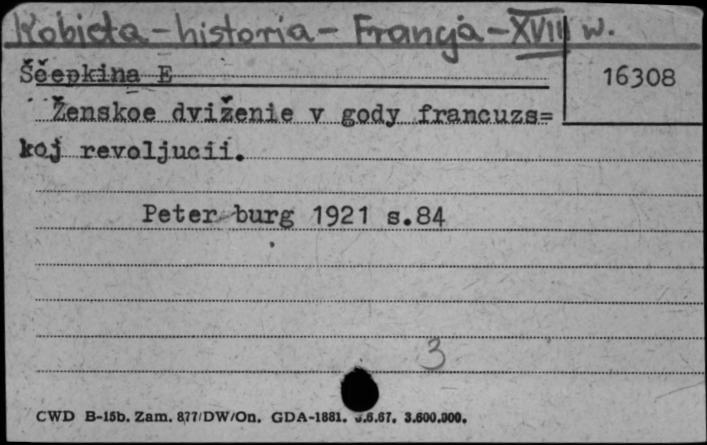 Kobieta - historia - Francja - XVIII w.
Ščepkina E
16308
Ženskoe dviženie v gody francuzs=
koj revoljucii.
Peter burg 1921 s.84
3
CWD B-15b. Zam. 877/DW/On. GDA-1881. 5.6.67. 3.600.000.